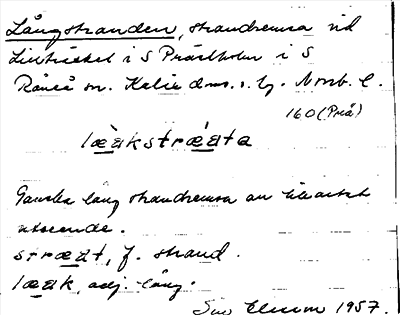 Långstranden, strandremsa vid
Lillträsket i S Prästholm i S
Råneå sn. Kalix doms. tg. Norrb. l.
160 (Prä)
lææ̀kstrǽæta
Ganska lång strandremsa av likartat
utseende.
strææt, f. strand.
lææk, adj. lång.
Elenius 1957.